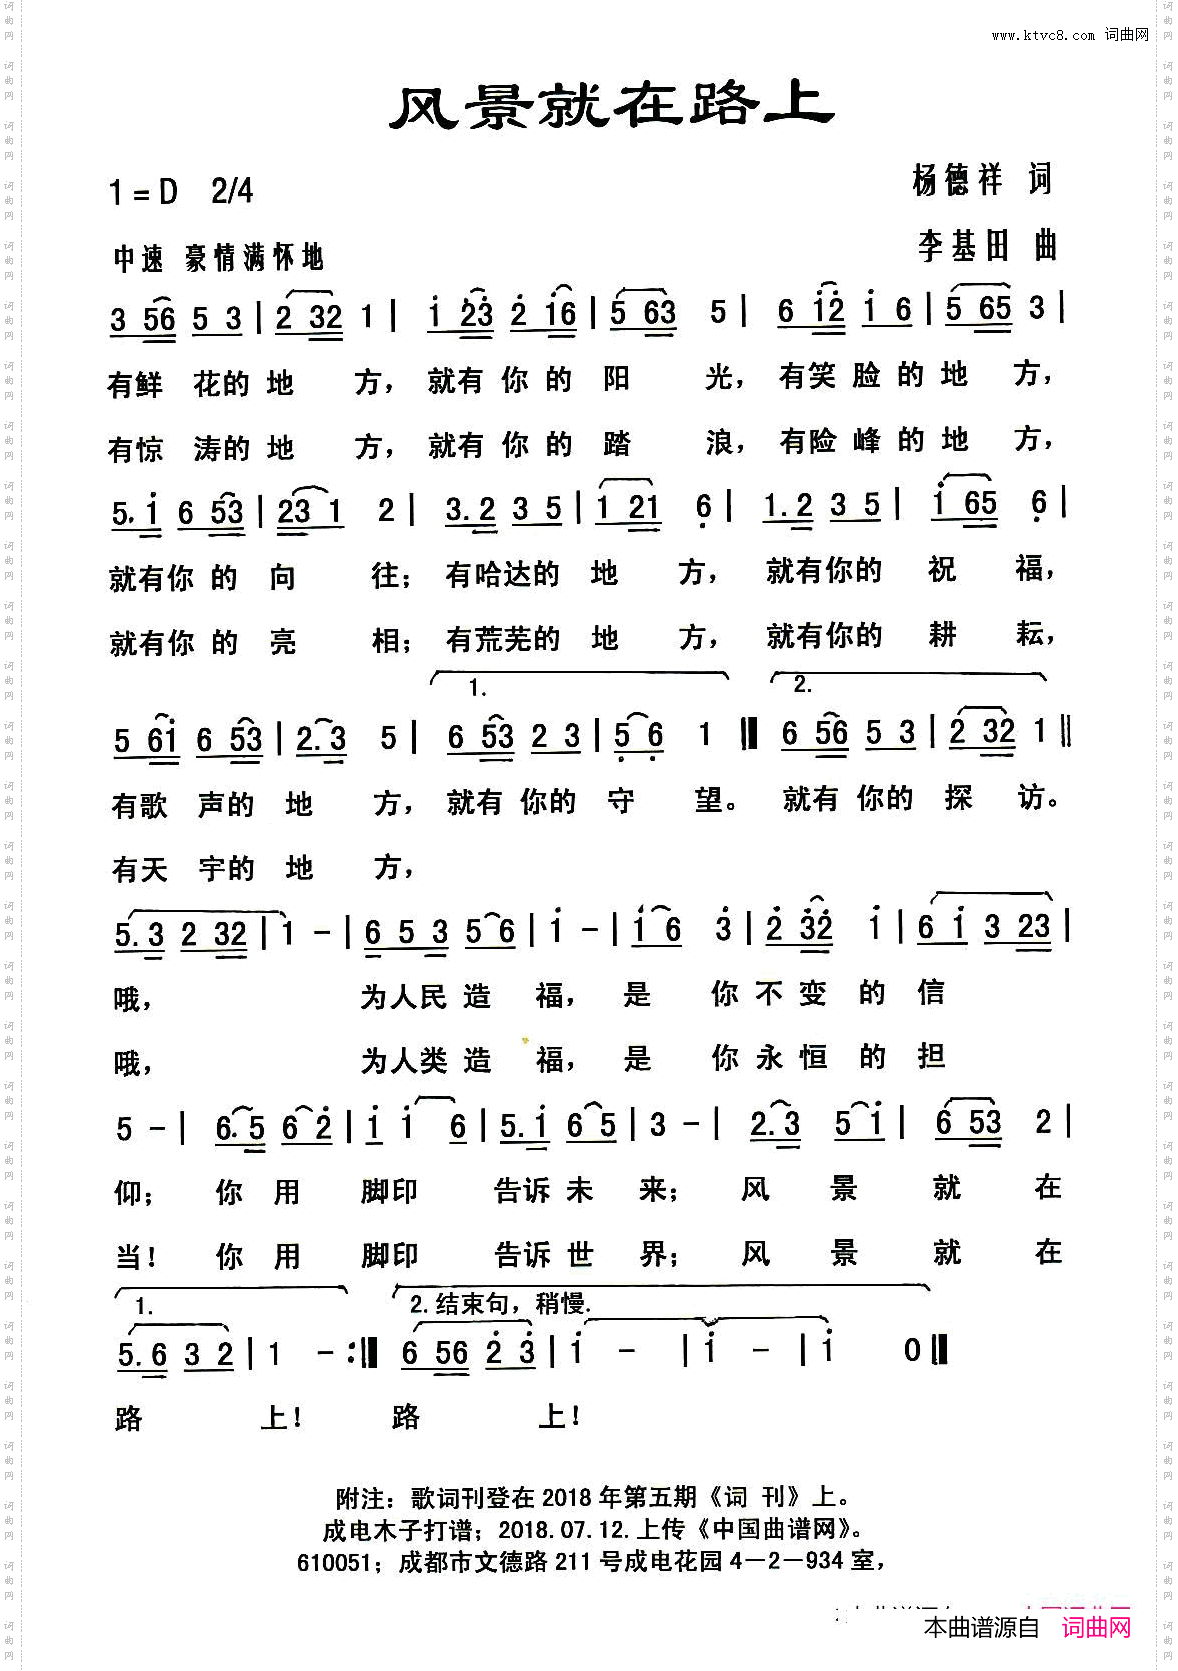 www.ktvc8.com 词曲网
风景就在路上
1=D 2/4
杨德祥 词
中速 豪情满怀地
李基田 曲
3 56 5 3 | 2 32 1 | i 23 2 i6 | 5 63 5 | 6 i2 i 6 | 5 65 3 |
有鲜 花的 地 方，就有 你 的 阳 光，有笑 脸 的 地 方，
有惊 涛的 地 方，就有 你 的 踏 浪，有险 峰 的 地 方，
5. i 6 53 | 23 1 2 | 3.2 3 5 | 1 21 6 | 1.2 3 5 | i 65 6 |
就有你 的 向 往；有哈达的 地 方， 就有你的 祝 福，
就有你 的 亮 相；有荒芜的 地 方， 就有你的 耕 耘，
1. 2.
5 6i 6 53 | 2.3 5 | 6 53 2 3 | 5 6 1 :‖ 6 56 5 3 | 2 32 1 ‖
有歌 声的 地 方，就有 你的 守 望。就有 你的 探 访。
有天 宇的 地 方，
5.3 2 32 | 1 - | 6 5 3 5 6 | i - | i 6 3 | 2 32 i | 6 i 3 23 |
哦， 为人民 造 福， 是 你 不 变 的 信
哦， 为人类 造 福， 是 你 永 恒 的 担
5 - | 6.5 6 2 | i i 6 | 5.i 6 5 | 3 - | 2.3 5 i | 6 53 2 |
仰； 你 用 脚印 告诉 未 来； 风 景 就 在
当！ 你 用 脚印 告诉 世 界； 风 景 就 在
1. 2.结束句，稍慢.
5.6 3 2 | 1 - :‖ 6 56 2 3 | i - | i - | i 0 ‖
路 上！ 路 上！
附注：歌词刊登在2018年第五期《词 刊》上。
成电木子打谱；2018.07.12.上传《中国曲谱网》。
610051；成都市文德路211号成电花园4－2－934室，
本曲谱源自 词曲网